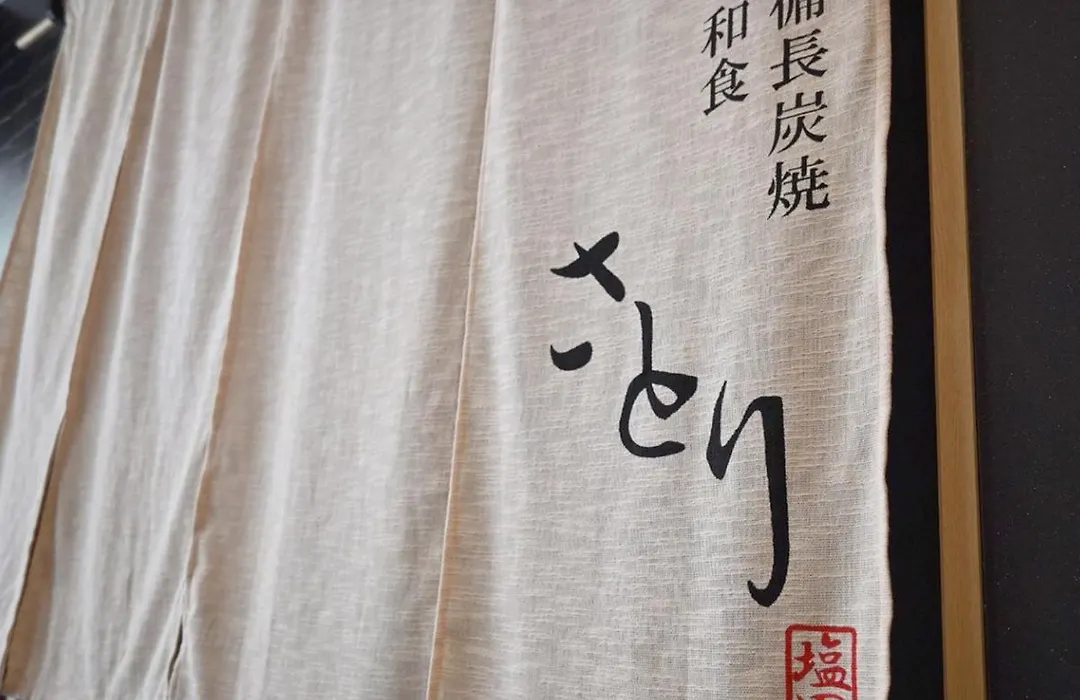 備長炭焼
和食
さとり
塩